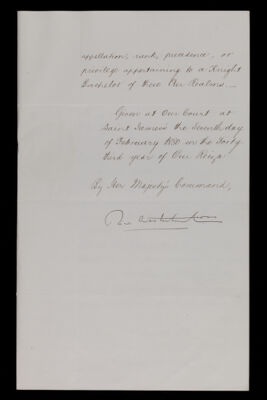 appellation, rank, precedence, or
privilege appertaining to a Knight
Bachelor of these Our Realms.
Given at Our Court at
Saint James's the Seventh day
of February 1880 in the Forty
third year of Our Reign.
By Her Majesty's Command,